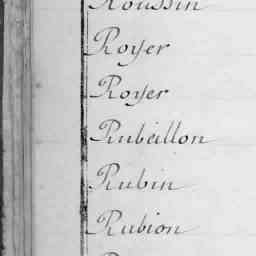 Roussin
Royer
Royer
Rubeillon
Rubin
Rubion